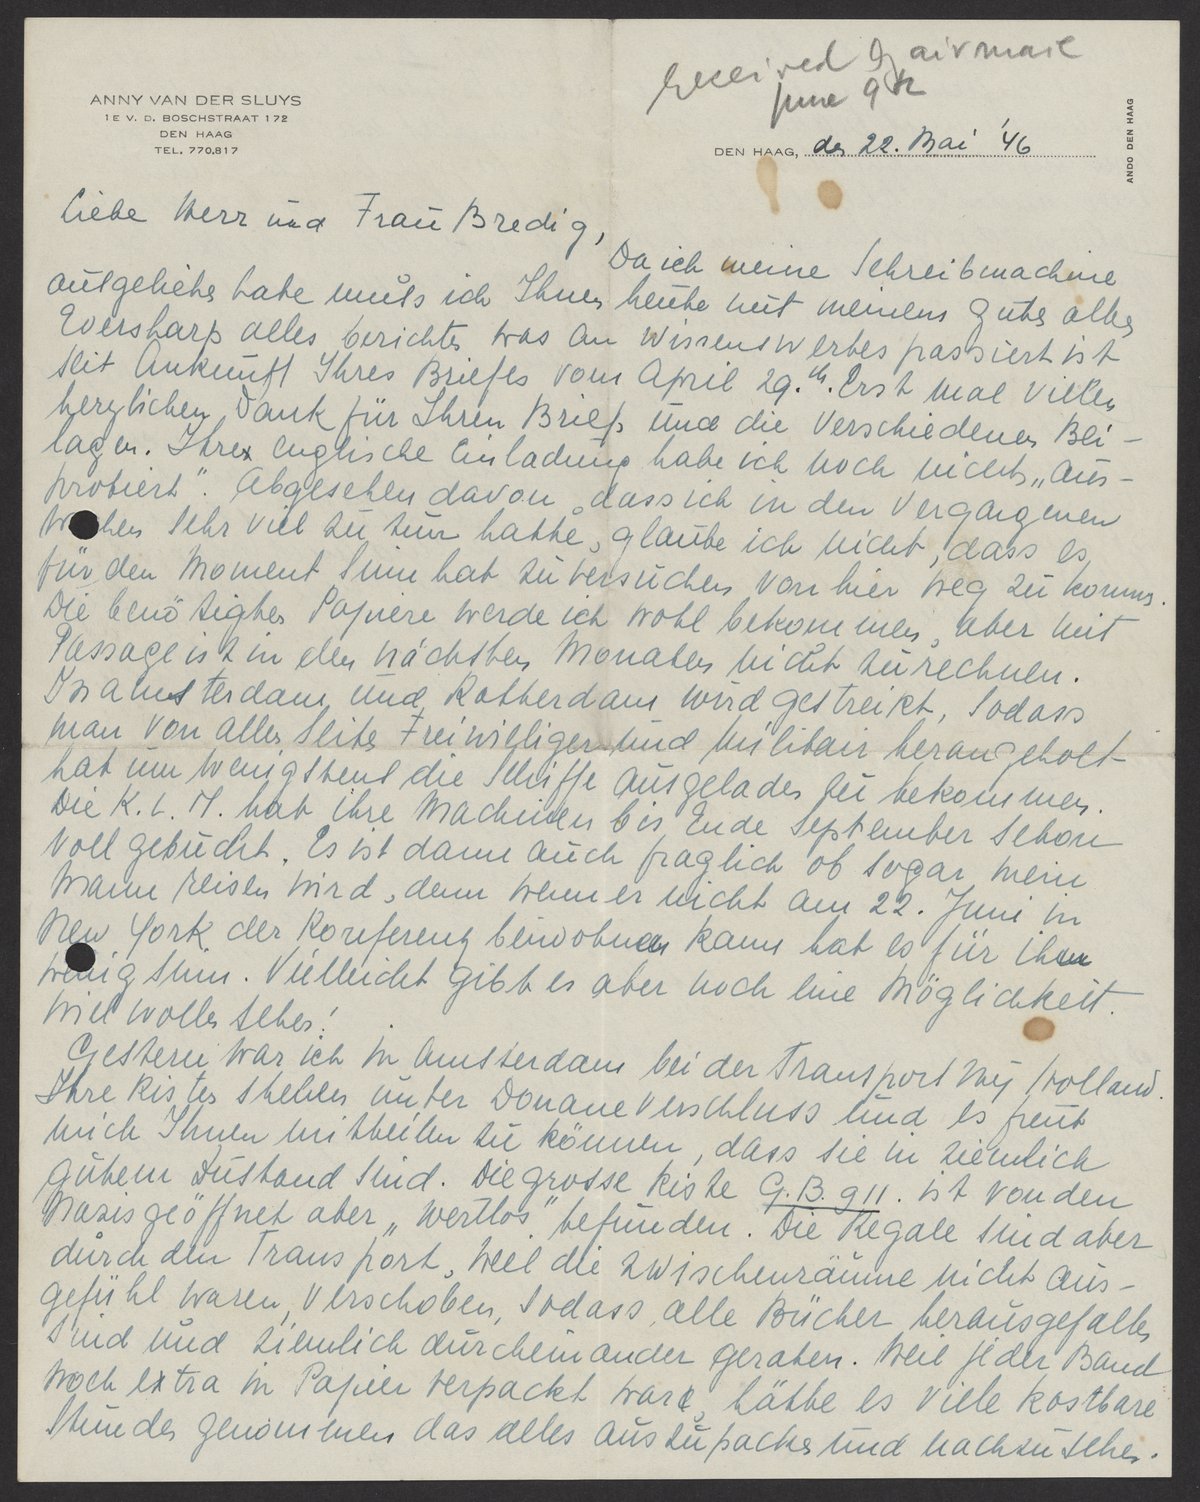 received by airmail
June 9th
ANNY VAN DER SLUYS
1E V. D. BOSCHSTRAAT 172
DEN HAAG
TEL. 770.817
DEN HAAG, den 22. Mai '46
ANDO DEN HAAG
Liebe Herr und Frau Bredig,
Da ich meine Schreibmachine
ausgeliehen habe muss ich Ihnen heute mit meinem guten alten
Eversharp alles berichten was an Wissenswertes passiert ist
seit Ankunft Ihres Briefes vom April 29.th. Erst mal vielen
herzlichen Dank für Ihren Brief und die verschiedenen Bei-
lagen. Ihre englische Einladung habe ich noch nicht „aus-
probiert". Abgesehen davon, dass ich in den vergangenen
Wochen sehr viel zu tun hatte, glaube ich nicht, dass es
für den Moment Sinn hat zu versuchen von hier weg zu kommen.
Die benötigten Papiere werde ich wohl bekommen, aber mit
Passage ist in den nächsten Monaten nicht zu rechnen.
In Amsterdam und Rotterdam wird gestreikt, sodass
man von allen Seiten Freiwilligen und Militair herangeholt
hat um wenigstens die Schiffe ausgeladen zu bekommen.
Die K.L.M. hat ihre Machinen bis Ende September schon
voll gebucht. Es ist dann auch fraglich ob sogar mein
Mann reisen wird, denn wenn er nicht am 22. Juni in
New York der Konferenz beiwohnen kann hat es für ihn
wenig Sinn. Vielleicht gibt es aber noch eine Möglichkeit.
Wir wollen sehen!
Gestern war ich in Amsterdam bei der Transport Mij Holland.
Ihre Kisten stehen unter Douane Verschluss und es freut
mich Ihnen mitteilen zu können, dass sie in ziemlich
gutem Zustand sind. Die grosse Kiste G.B. 911. ist von den
Nazis geöffnet aber „wertlos" befunden. Die Regale sind aber
durch den Transport, weil die Zwischenräume nicht aus-
gefühl waren, verschoben, sodass alle Bücher herausgefallen
sind und ziemlich durcheinander geraten. Weil jeder Band
noch extra in Papier verpackt war, hätte es viele kostbare
Stunden genommen das alles auszupacken und nachzusehen.